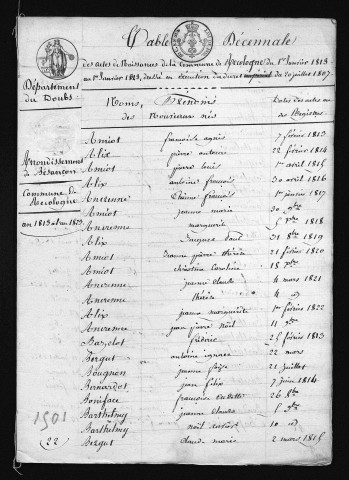 Table Décennale
des actes de Naissances de la commune de Recologne du 1er Janvier 1813
au 1er Janvier 1823, dressée en exécution du décret impérial du 20 juillet 1807.
Département
du Doubs
Arrondissement
de Besançon
Commune de
Recologne
an 1813 à l'an 1823
Noms, Prénoms
des Nouveaux nés
Dates des actes ou
des Registres
Amiot françoise agnès 7 février 1813
Alix pierre antoine 22 février 1814
Amiot pierre louis 1er avril 1815
Alix antoine françois 30 août 1816
Anvrenne Etienne françois 1er janvier 1817
Amiot jeanne marie 30
Anvrenne marguerite 1818
Alix Jacques Paul 31 8bre 1819
Amiot jeanne pierre thérèse 21 février 1820
Amiot christine caroline 18
Anvrenne jeanne claude 4 mars 1821
Anvrenne thérèse 4 id
Alix jeanne marguerite 1er février 1822
Anvrenne jean pierre noël 11
Barzelot frédéric 25 février 1813
Bergut antoine ignace 22 mars
Bougnon jeanne 21 juillet
Bernardot jean félix 7 juin 1814
Boniface françoise 26 8bre
Barthelmy jeanne claude
Barthelmy noël 10 id
Bergut claude marie 2 mars 1815
1501
22